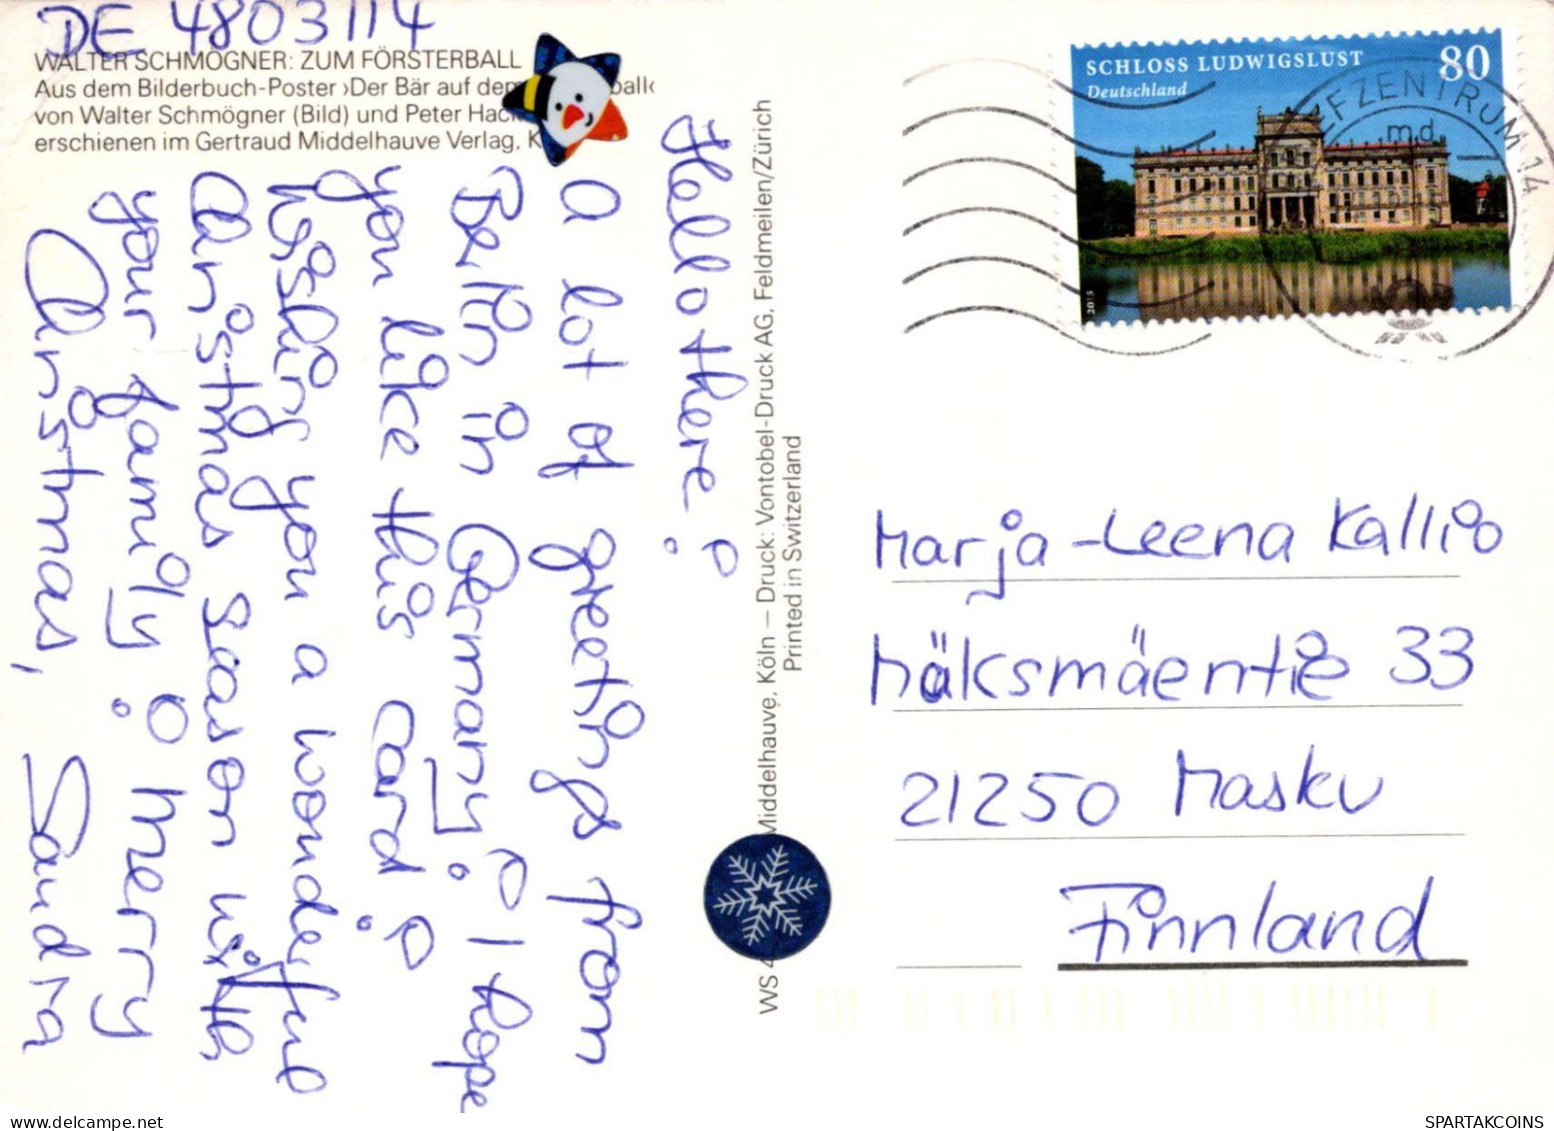 DE 4803114
WALTER SCHMÖGNER: ZUM FÖRSTERBALL
Aus dem Bilderbuch-Poster ›Der Bär auf dem ball‹
von Walter Schmögner (Bild) und Peter Hac
erschienen im Gertraud Middelhauve Verlag, K
Hello there!
A lot of greetings from
Berlin in Germany! I hope
you like this card!
Wishing you a wonderful
Christmas season with
your family! Merry
Christmas, Sandra
WS 4 Middelhauve, Köln – Druck: Vontobel-Druck AG, Feldmeilen/Zürich
Printed in Switzerland
SCHLOSS LUDWIGSLUST 80
Deutschland
2015
EFZENTRUM 14
md
Marja-Leena Kallio
Mäksmäentie 33
21250 Masku
Finnland
SPARTAKCOINS
www.delcampe.net